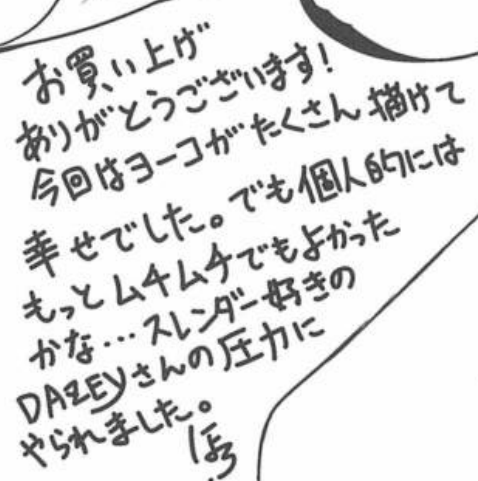 お買い上げ
ありがとうございます!
今回はヨーコがたくさん描けて
幸せでした。でも個人的には
もっとムチムチでもよかった
かな…スレンダー好きの
DAZEYさんの圧力に
やられました。
ぽち